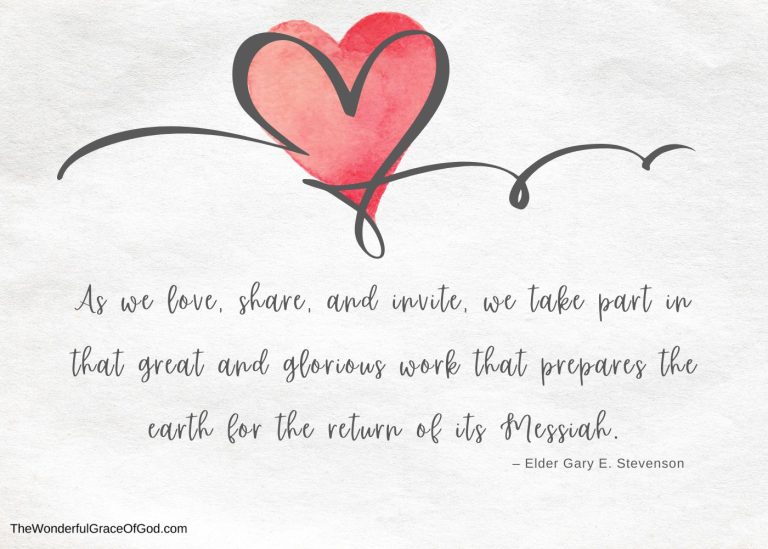 As we love, share, and invite, we take part in
that great and glorious work that prepares the
earth for the return of its Messiah.
– Elder Gary E. Stevenson
TheWonderfulGraceOfGod.com